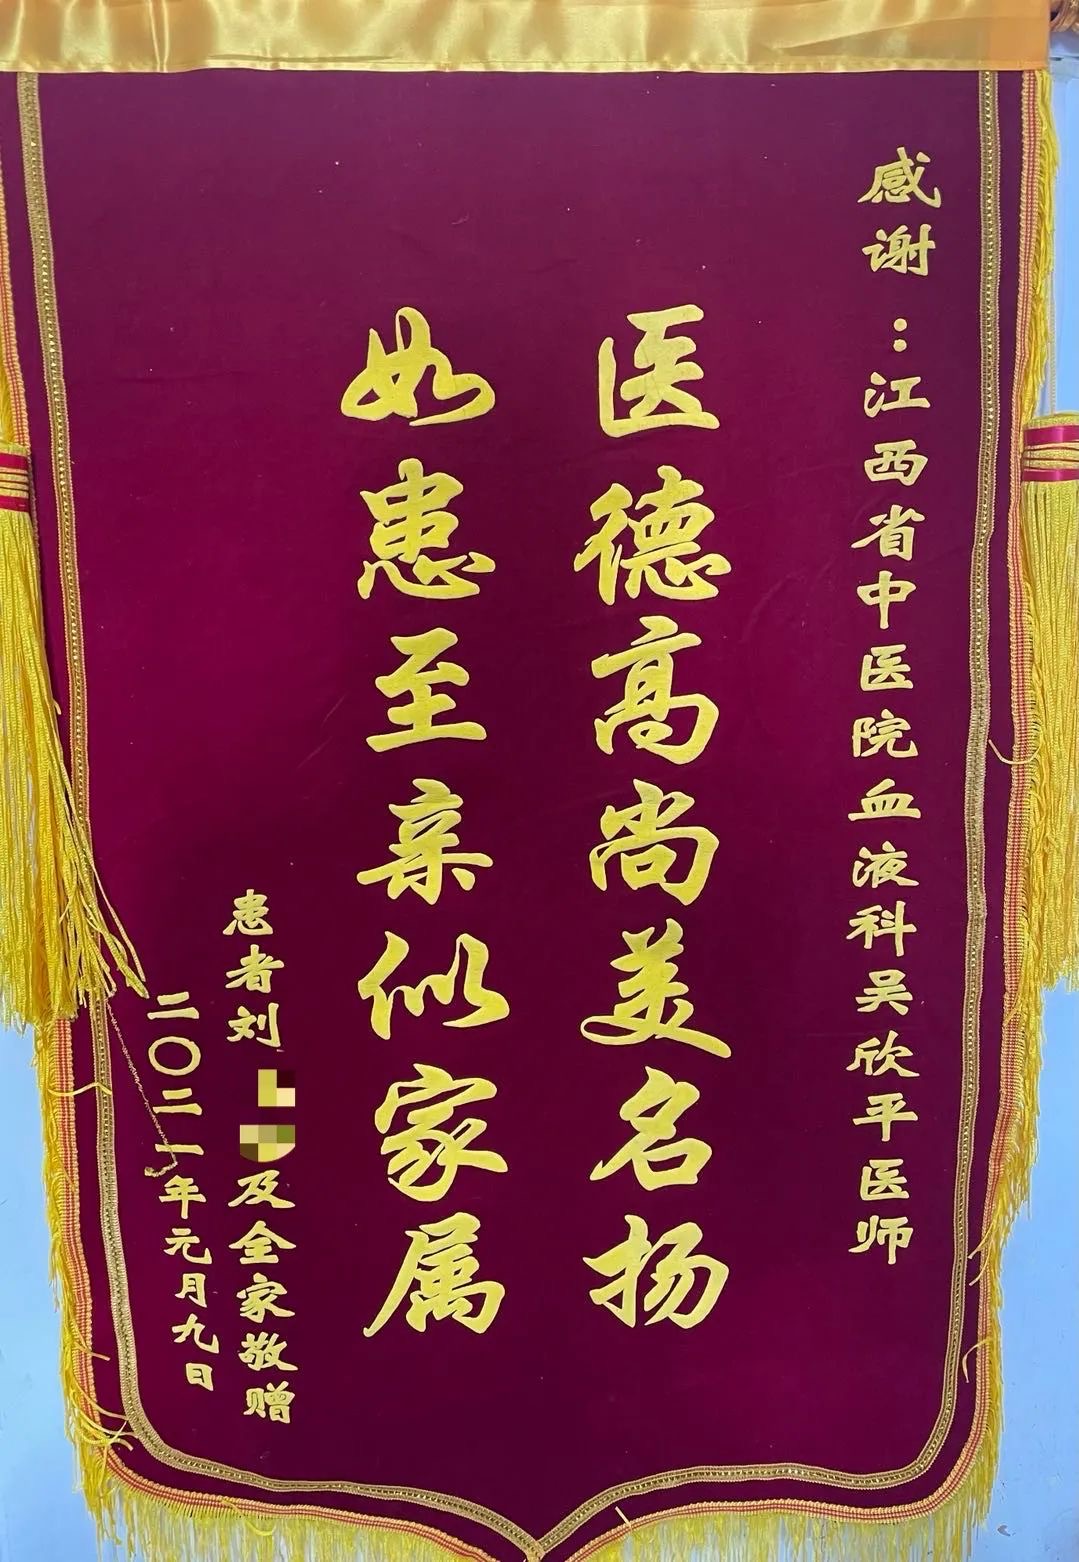 感谢：江西省中医院血液科吴欣平医师
医德高尚美名扬
如患至亲似家属
患者刘及全家敬赠
二〇二一年元月九日